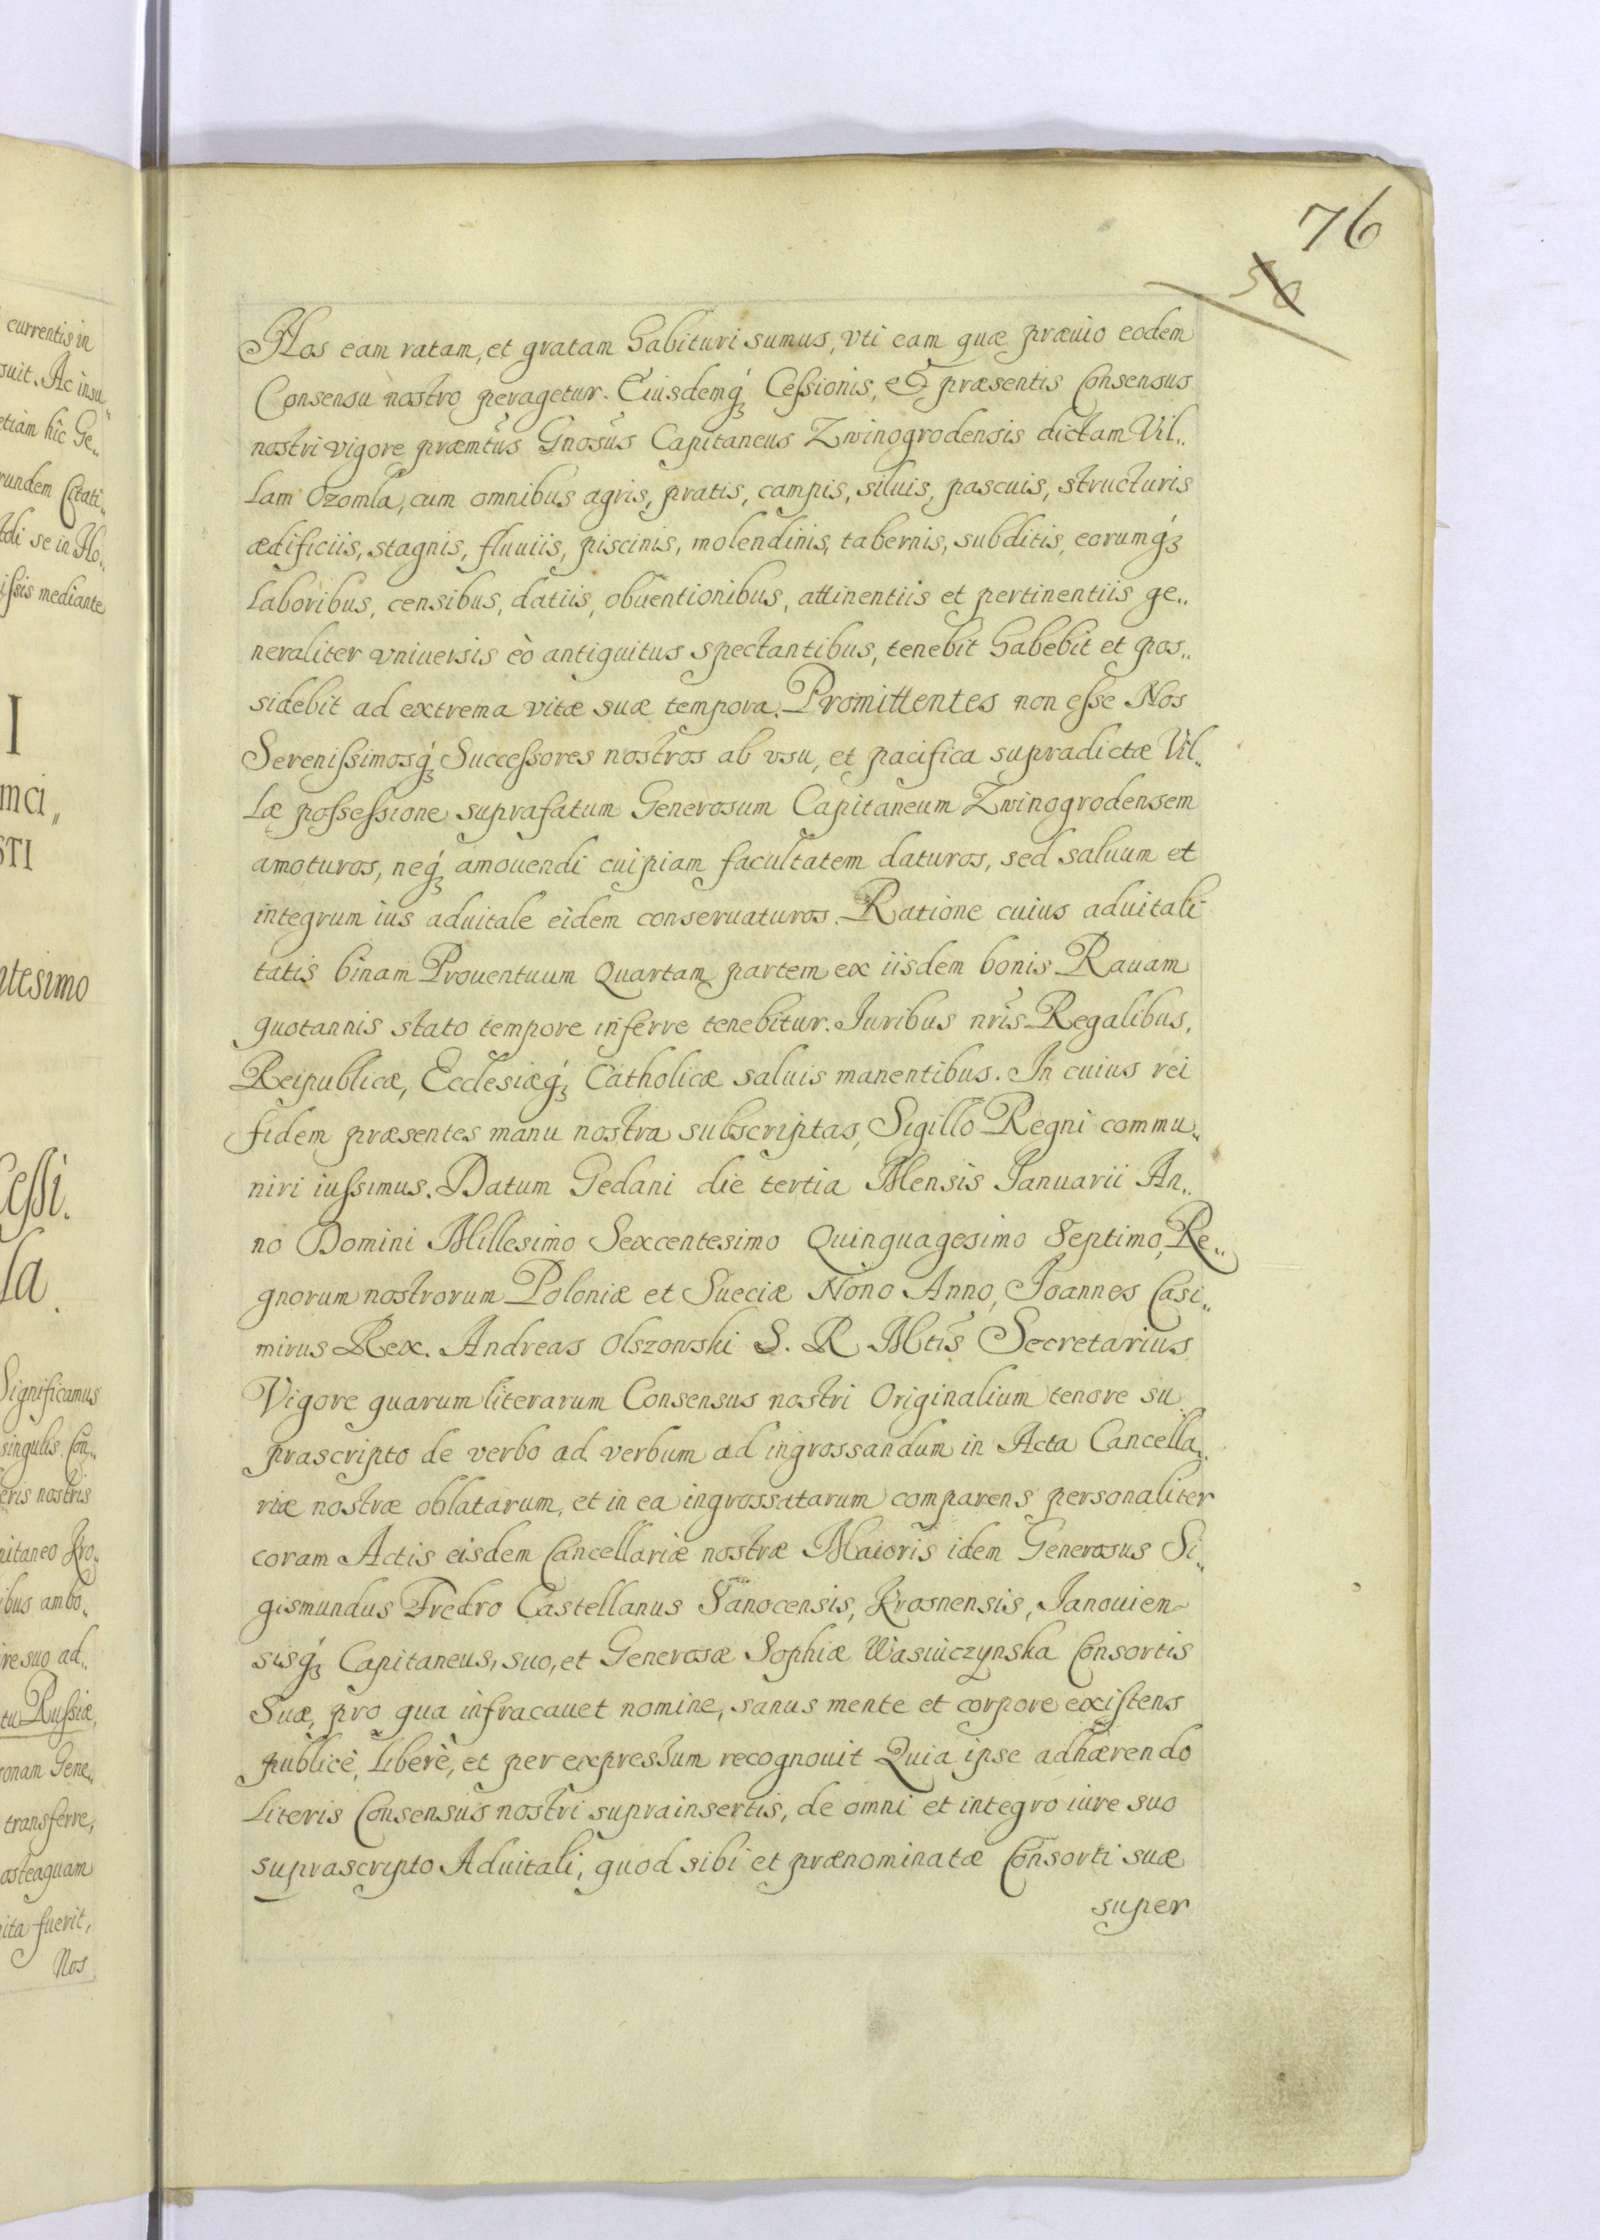 76
50
Nos eam ratam, et gratam habituri sumus, vti eam quæ præuio eodem
Consensu nostro peragetur. Eiusdemq́ꝫ Cessionis, et præsentis Consensus
nostri vigore præmtus Gnosus Capitaneus Zwinogrodensis dictam Vil„
lam Ozomla, cum omnibus agris, pratis, campis, siluis, pascuis, structuris
ædificiis, stagnis, fluuiis, piscinis, molendinis, tabernis, subditis, eorumq́ꝫ
laboribus, censibus, datiis, obuentionibus, attinentiis et pertinentiis ge„
neraliter vniuersis eò antiquitus spectantibus, tenebit habebit et pos„
sidebit ad extrema vitæ suæ tempora. Promittentes non esse Nos
Serenissimosq́ꝫ Successores nostros ab vsu, et pacifica supradictæ Vil„
læ possessione suprafatum Generosum Capitaneum Zwinogrodensem
amoturos, neq́ꝫ amouendi cuipiam facultatem daturos, sed saluum et
integrum ius aduitale eidem conseruaturos. Ratione cuius aduitali-
tatis binam Prouentuum Quartam partem ex iisdem bonis Rauam
quotannis stato tempore inferre tenebitur. Iuribus nris Regalibus,
Reipublicæ, Ecclesiæq́ꝫ Catholicæ saluis manentibus. In cuius rei
fidem præsentes manu nostra subscriptas, Sigillo Regni commu„
niri iussimus. Datum Gedani die tertia Mensis Ianuarii An„
no Domini Millesimo Sexcentesimo Quinquagesimo Septimo, Re„
gnorum nostrorum Poloniæ et Sueciæ Nono Anno, Joannes Casi„
mirus Rex. Andreas Olszowski S. R Mtis Secretarius
Vigore quarum literarum Consensus nostri Originalium tenore su„
prascripto de verbo ad verbum ad ingrossandum in Acta Cancella„
riæ nostræ oblatarum, et in ea ingrossatarum comparens personaliter
coram Actis eisdem Cancellariæ nostræ Maioris idem Generosus Si„
gismundus Fredro Castellanus Sanocensis, Krosnensis, Ianouien-
sisq́ꝫ Capitaneus, suo, et Generosæ Sophiæ Wasiuczynska Consortis
Suæ, pro qua infracauet nomine, sanus mente et corpore existens
publicè, liberè, et per expressum recognouit Quia ipse adhærendo
Literis Consensus nostri suprainsertis, de omni et integro iure suo
suprascripto Aduitali, quod sibi et prænominatæ Consorti suæ
super